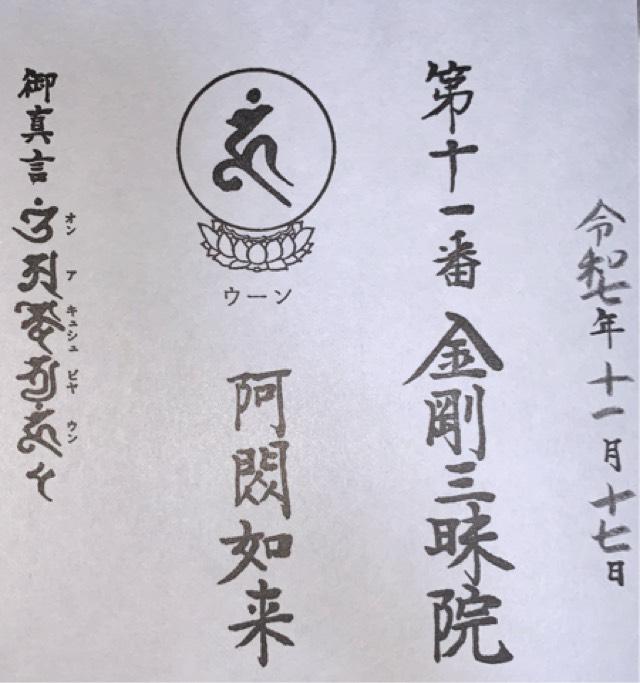 令和七年十一月十七日
第十一番 金剛三昧院
ウーン
阿閦如来
御真言
オン ア キュシュ ビヤ ウン